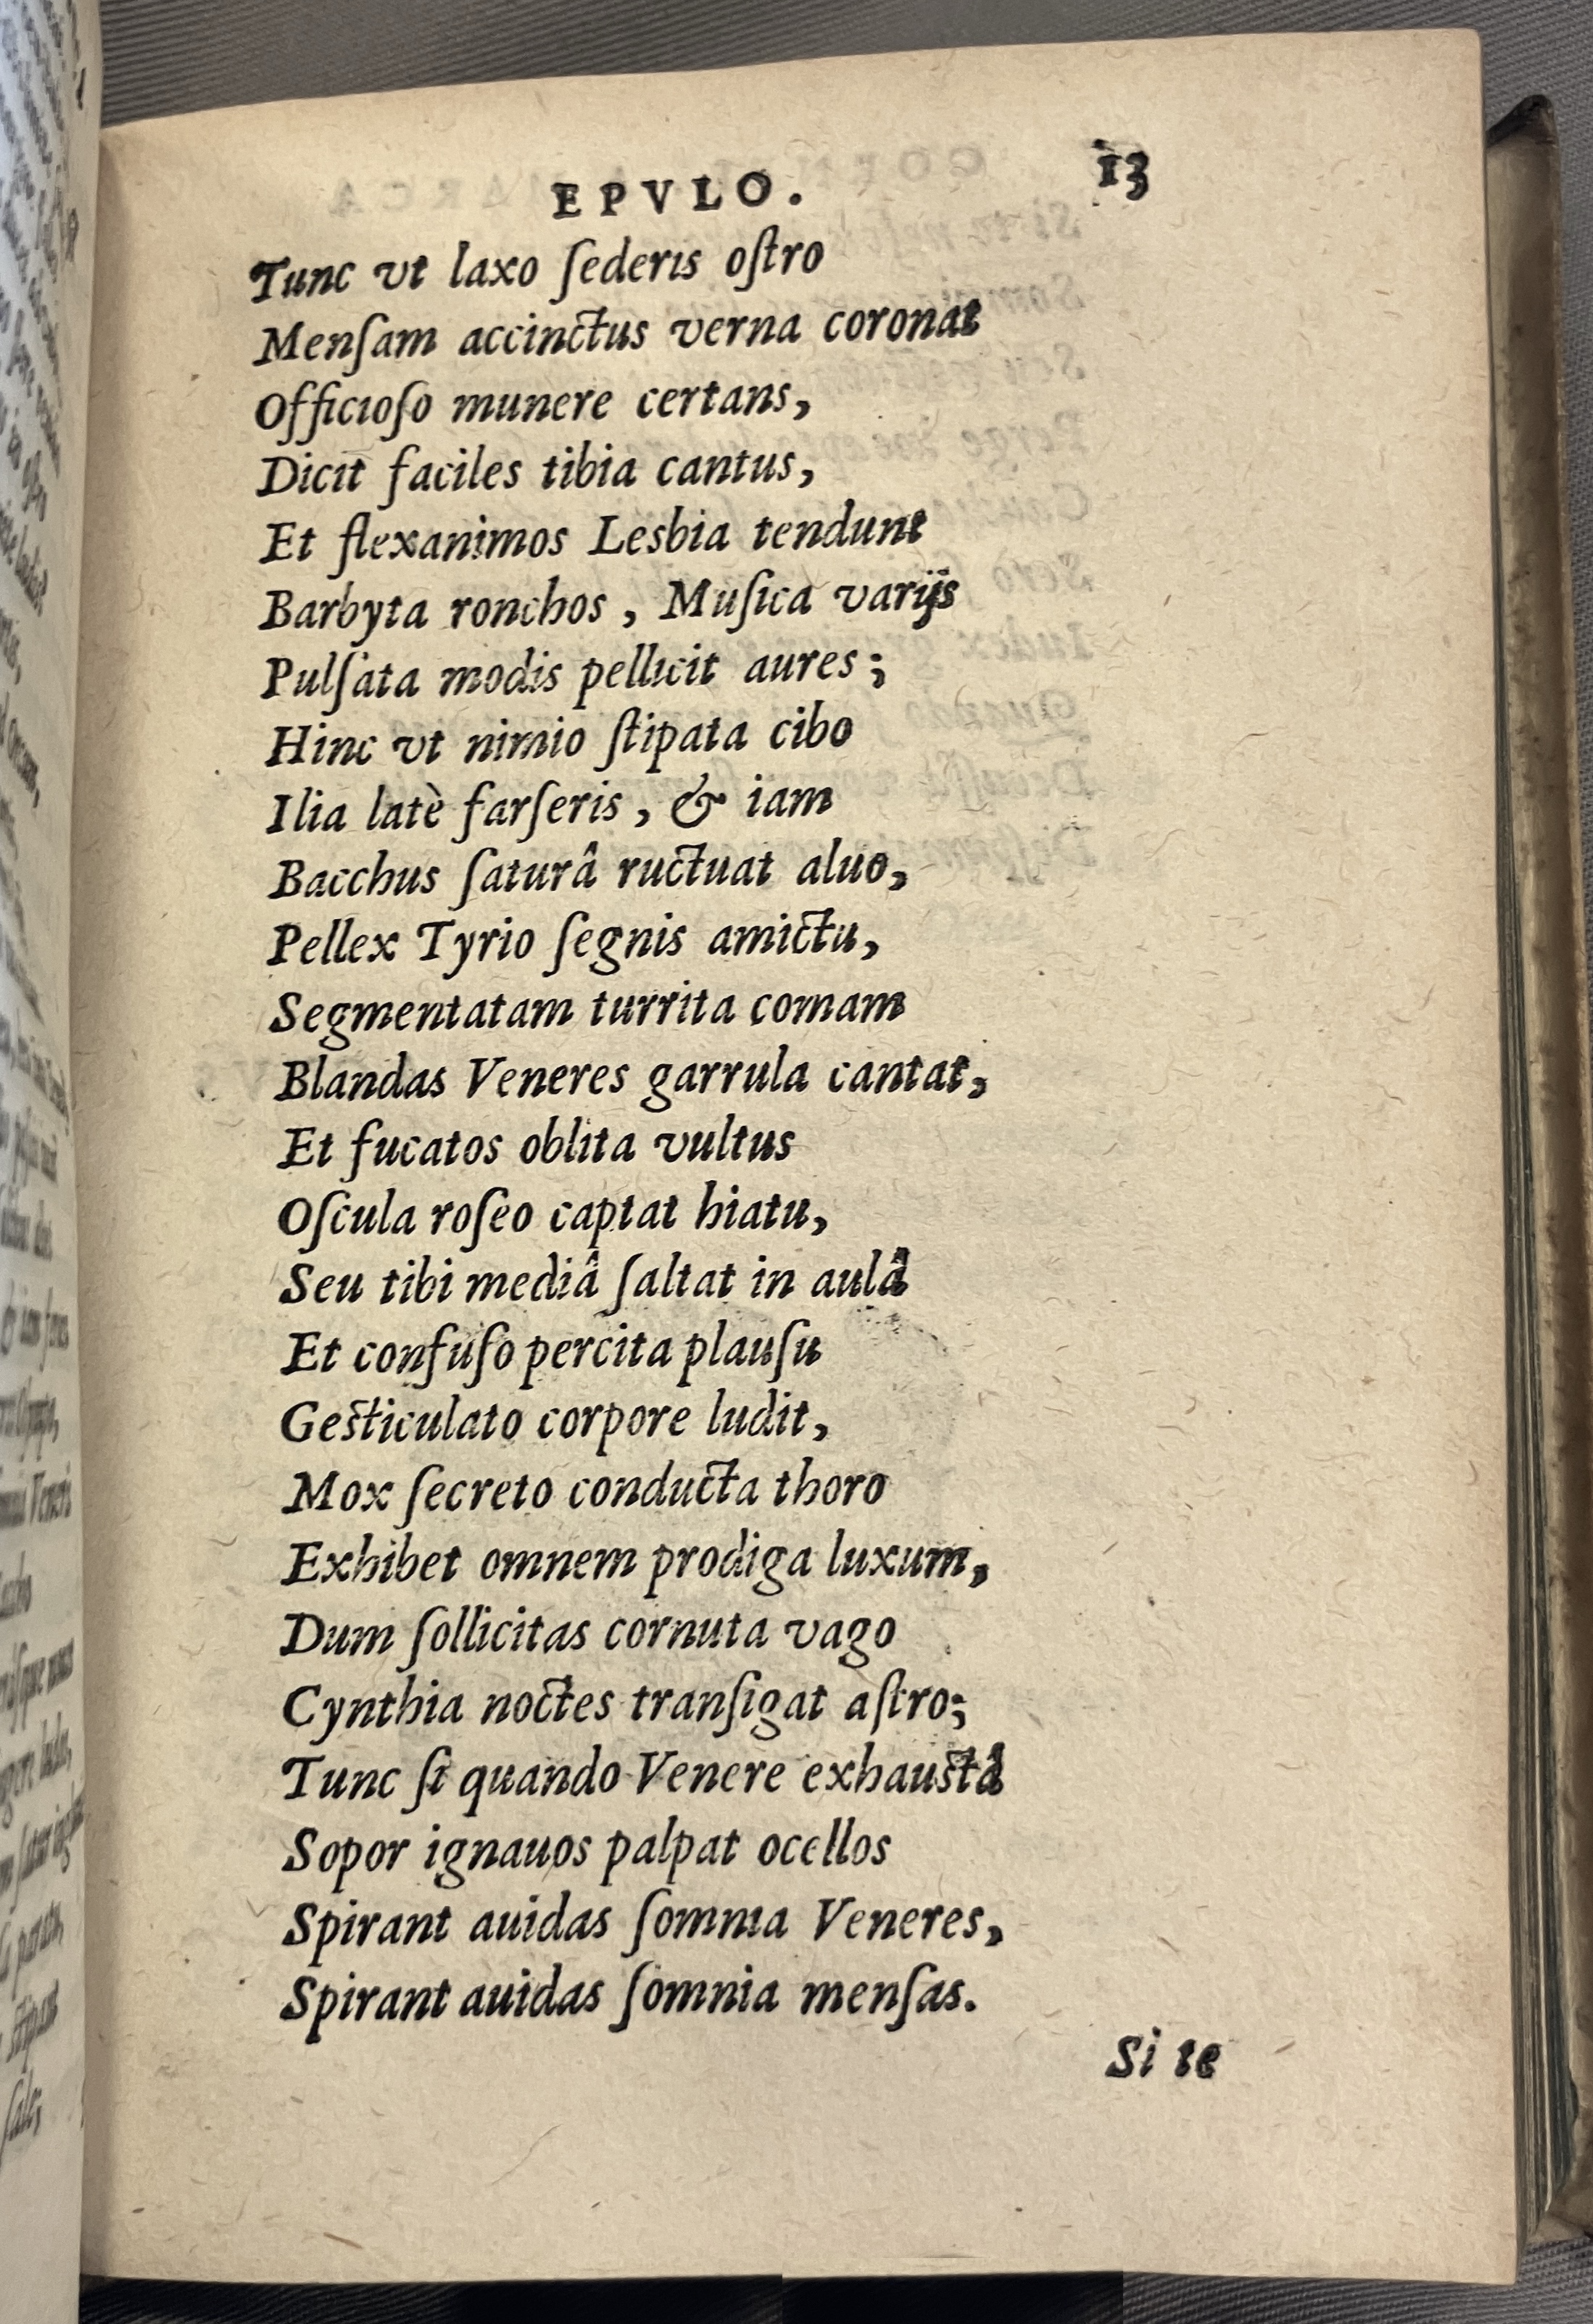 EPVLO. 13
Tunc vt laxo ſederis oſtro
Menſam accinctus verna coronat
Officioſo munere certans,
Dicit faciles tibia cantus,
Et flexanimos Lesbia tendunt
Barbyta ronchos, Muſica varijs
Pulſata modis pellicit aures;
Hinc vt nimio ſtipata cibo
Ilia latè farſeris, & iam
Bacchus ſaturâ ructuat aluo,
Pellex Tyrio ſegnis amictu,
Segmentatam turrita comam
Blandas Veneres garrula cantat,
Et fucatos oblita vultus
Oſcula roſeo captat hiatu,
Seu tibi mediâ ſaltat in aulâ
Et confuſo percita plauſu
Geſticulato corpore ludit,
Mox ſecreto conducta thoro
Exhibet omnem prodiga luxum,
Dum ſollicitas cornuta vago
Cynthia noctes tranſigat aſtro;
Tunc ſi quando Venere exhauſtâ
Sopor ignauos palpat ocellos
Spirant auidas ſomnia Veneres,
Spirant auidas ſomnia menſas.
Si te